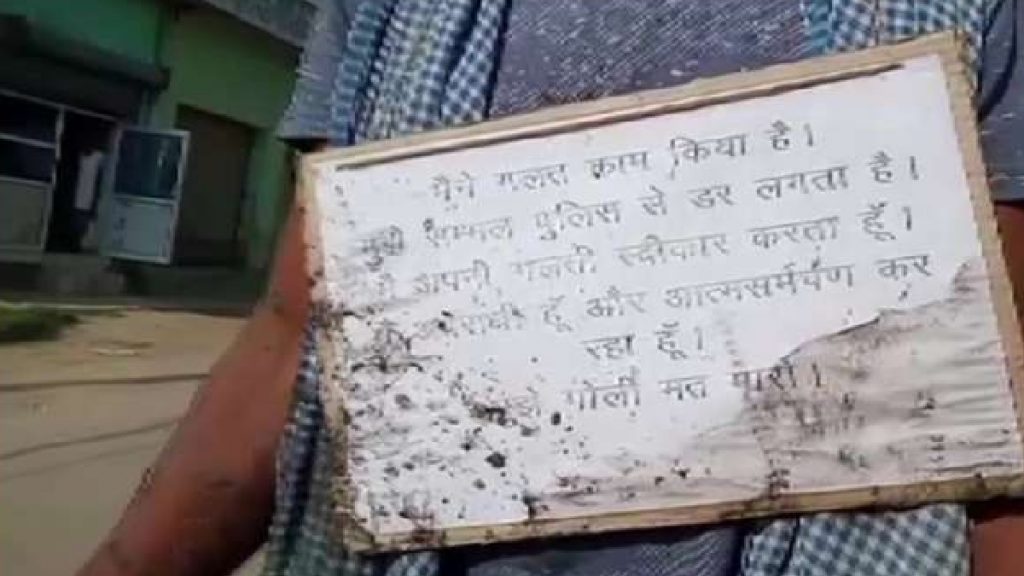 मैने गलत काम किया है।
मुझे सम्भल पुलिस से डर लगता है।
मै अपनी गलती स्वीकार करता हूँ।
मै अपराधी हूँ और आत्मसर्मपण कर
रहा हूँ।
गोली मत मारो।